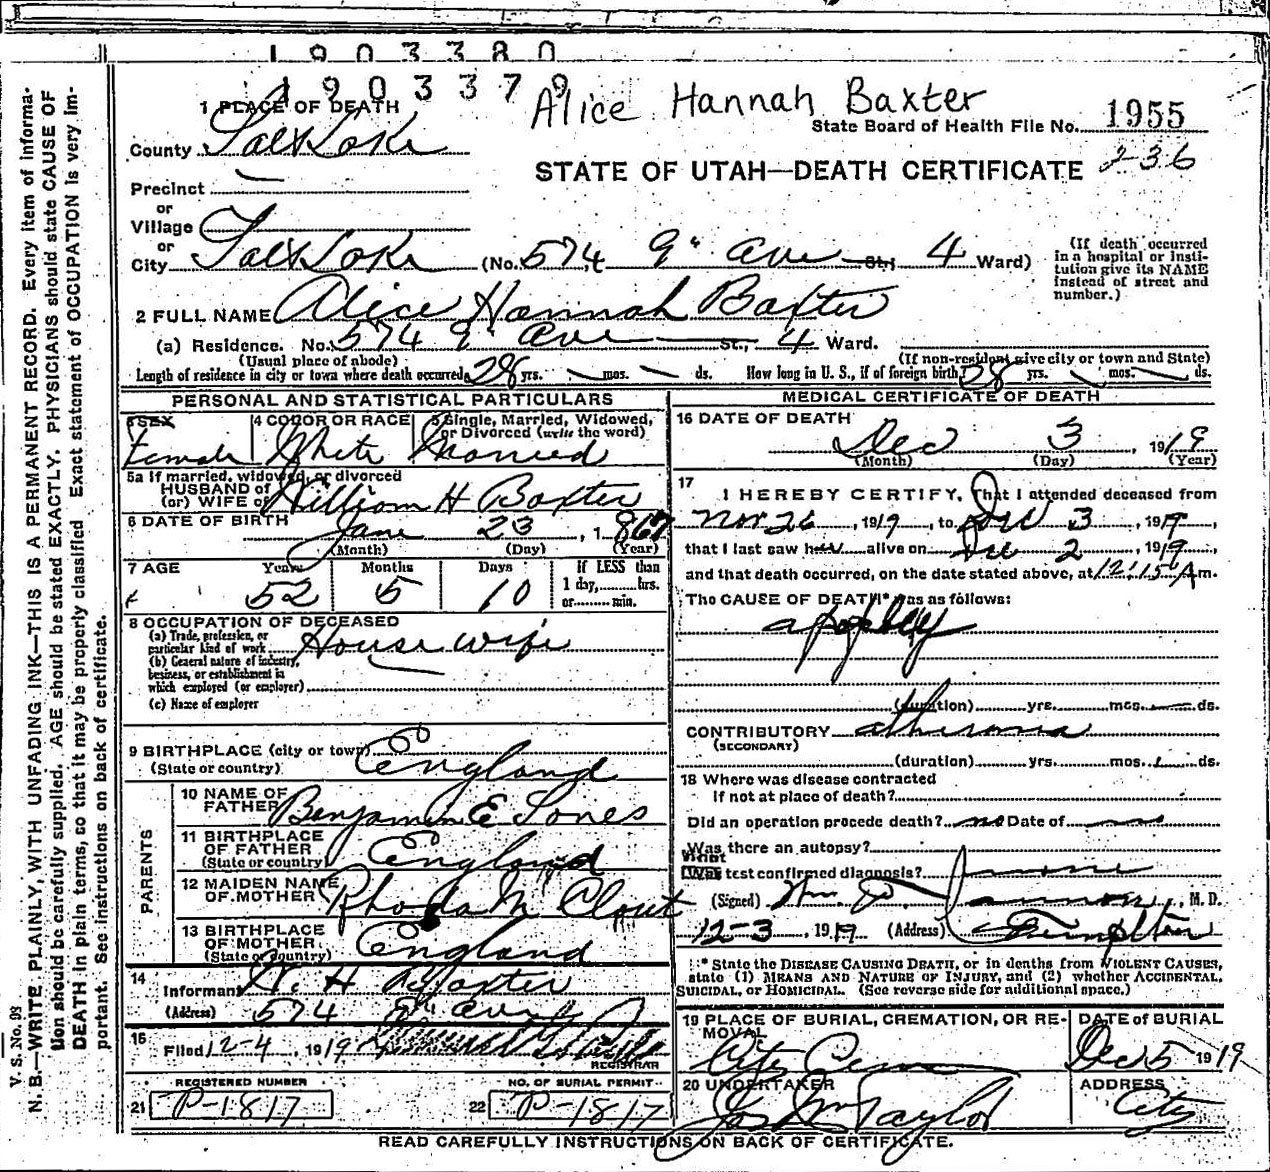 1903380
1903379
Alice Hannah Baxter
1 PLACE OF DEATH
State Board of Health File No. 1955
County Salt Lake
STATE OF UTAH—DEATH CERTIFICATE 236
Precinct
or
Village
or
City Salt Lake (No. 574 9" Ave St; 4 Ward)
(If death occurred
in a hospital or insti-
tution give its NAME
instead of street and
number.)
2 FULL NAME Alice Hannah Baxter
(a) Residence. No. 574 9" Ave St., 4 Ward.
(Usual place of abode) (If non-resident give city or town and State)
Length of residence in city or town where death occurred 28 yrs. mos. ds. How long in U. S., if of foreign birth 28 yrs. mos. ds.
PERSONAL AND STATISTICAL PARTICULARS
3 SEX 4 COLOR OR RACE 5 Single, Married, Widowed,
or Divorced (write the word)
Female White Married
5a If married, widowed, or divorced
HUSBAND of
(or) WIFE of William H Baxter
6 DATE OF BIRTH June 23, 1867
(Month) (Day) (Year)
7 AGE Years Months Days If LESS than
1 day, hrs.
or min.
52 5 10
8 OCCUPATION OF DECEASED
(a) Trade, profession, or
particular kind of work House wife
(b) General nature of industry,
business, or establishment in
which employed (or employer)
(c) Name of employer
9 BIRTHPLACE (city or town)
(State or country) England
PARENTS
10 NAME OF
FATHER Benjamin E Jones
11 BIRTHPLACE
OF FATHER
(State or country) England
12 MAIDEN NAME
OF MOTHER Rhoda M Clout
13 BIRTHPLACE
OF MOTHER
(State or country) England
14
Informant W. H Baxter
(Address) 574 Ave
15 Filed 12-4, 1919
REGISTRAR
REGISTERED NUMBER NO. OF BURIAL PERMIT
21 P-1817 22 P-1817
MEDICAL CERTIFICATE OF DEATH
16 DATE OF DEATH
Dec 3 1919
(Month) (Day) (Year)
17
I HEREBY CERTIFY, That I attended deceased from
Nov 26, 1919, to Dec 3, 1919,
that I last saw her alive on Dec 2, 1919,
and that death occurred, on the date stated above, at 12:15 A m.
The CAUSE OF DEATH* was as follows:
apoplexy
(duration) yrs. mos. ds.
CONTRIBUTORY atheroma
(SECONDARY)
(duration) yrs. mos. ds.
18 Where was disease contracted
If not at place of death?
Did an operation precede death? no Date of
Was there an autopsy?
What test confirmed diagnosis?
(Signed) Wm , M. D.
12-3, 1919 (Address) Templeton
* State the DISEASE CAUSING DEATH, or in deaths from VIOLENT CAUSES,
state (1) MEANS AND NATURE OF INJURY, and (2) whether ACCIDENTAL,
SUICIDAL, or HOMICIDAL. (See reverse side for additional space.)
19 PLACE OF BURIAL, CREMATION, OR RE-
MOVAL
City Cem
DATE of BURIAL
Dec 5 1919
20 UNDERTAKER
Jos Wm Taylor
ADDRESS
City
READ CAREFULLY INSTRUCTIONS ON BACK OF CERTIFICATE.
V. S. No. 93
N. B.—WRITE PLAINLY, WITH UNFADING INK—THIS IS A PERMANENT RECORD. Every item of informa-
tion should be carefully supplied. AGE should be stated EXACTLY. PHYSICIANS should state CAUSE OF
DEATH in plain terms, so that it may be properly classified. Exact statement of OCCUPATION is very im-
portant. See instructions on back of certificate.